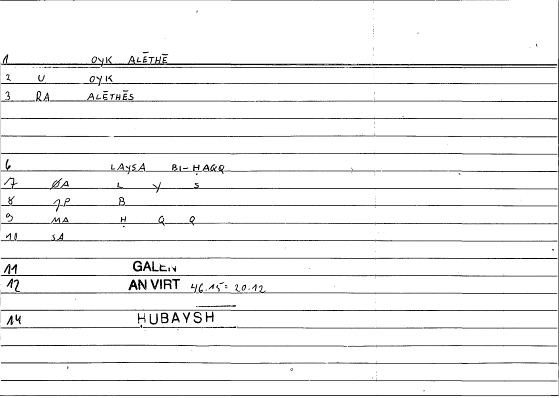 1 OYK ALĒTHĒ
2 U OYK
3 RA ALĒTHĒS
6 LAYSA BI-ḤAQQ
7 ØA L Y S
8 JP B
9 MA Ḥ Q Q
10 SA
11 GALEN
12 AN VIRT 46.15 = 20.12
14 ḤUBAYSH